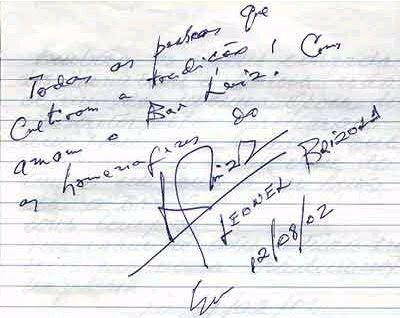 Todas as pessoas que
Cultivam a tradição! Como
amam o Bar Luiz.
as homenagens do
LEONEL BRIZOLA
12/08/02